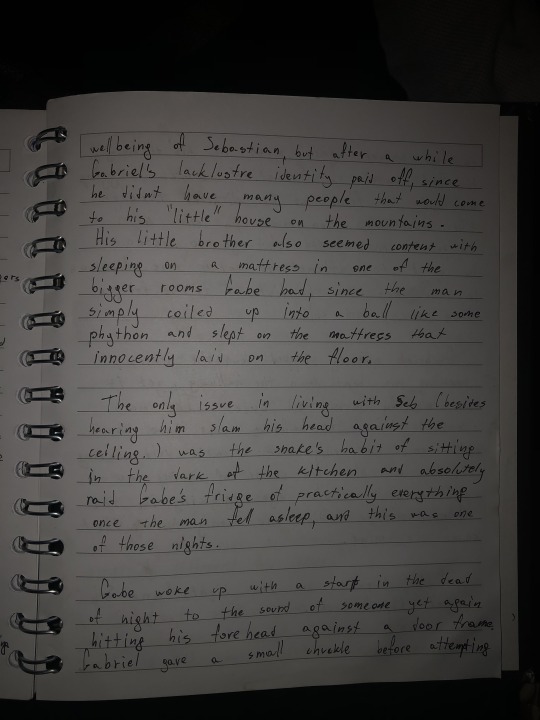 wellbeing of Sebastian, but after a while
Gabriel's lacklustre identity paid off, since
he didnt have many people that would come
to his "little" house on the mountains.
His little brother also seemed content with
sleeping on a mattress in one of the
bigger rooms Gabe had, since the man
simply coiled up into a ball like some
phython and slept on the mattress that
innocently laid on the floor.
The only issue in living with Seb (besides
hearing him slam his head against the
ceiling.) was the snake's habit of sitting
in the dark of the kitchen and absolutely
raid Gabe's fridge of practically everything
once the man fell asleep, and this was one
of those nights.
Gabe woke up with a start in the dead
of night to the sound of someone yet again
hitting his forehead against a door frame,
Gabriel gave a small chuckle before attempting